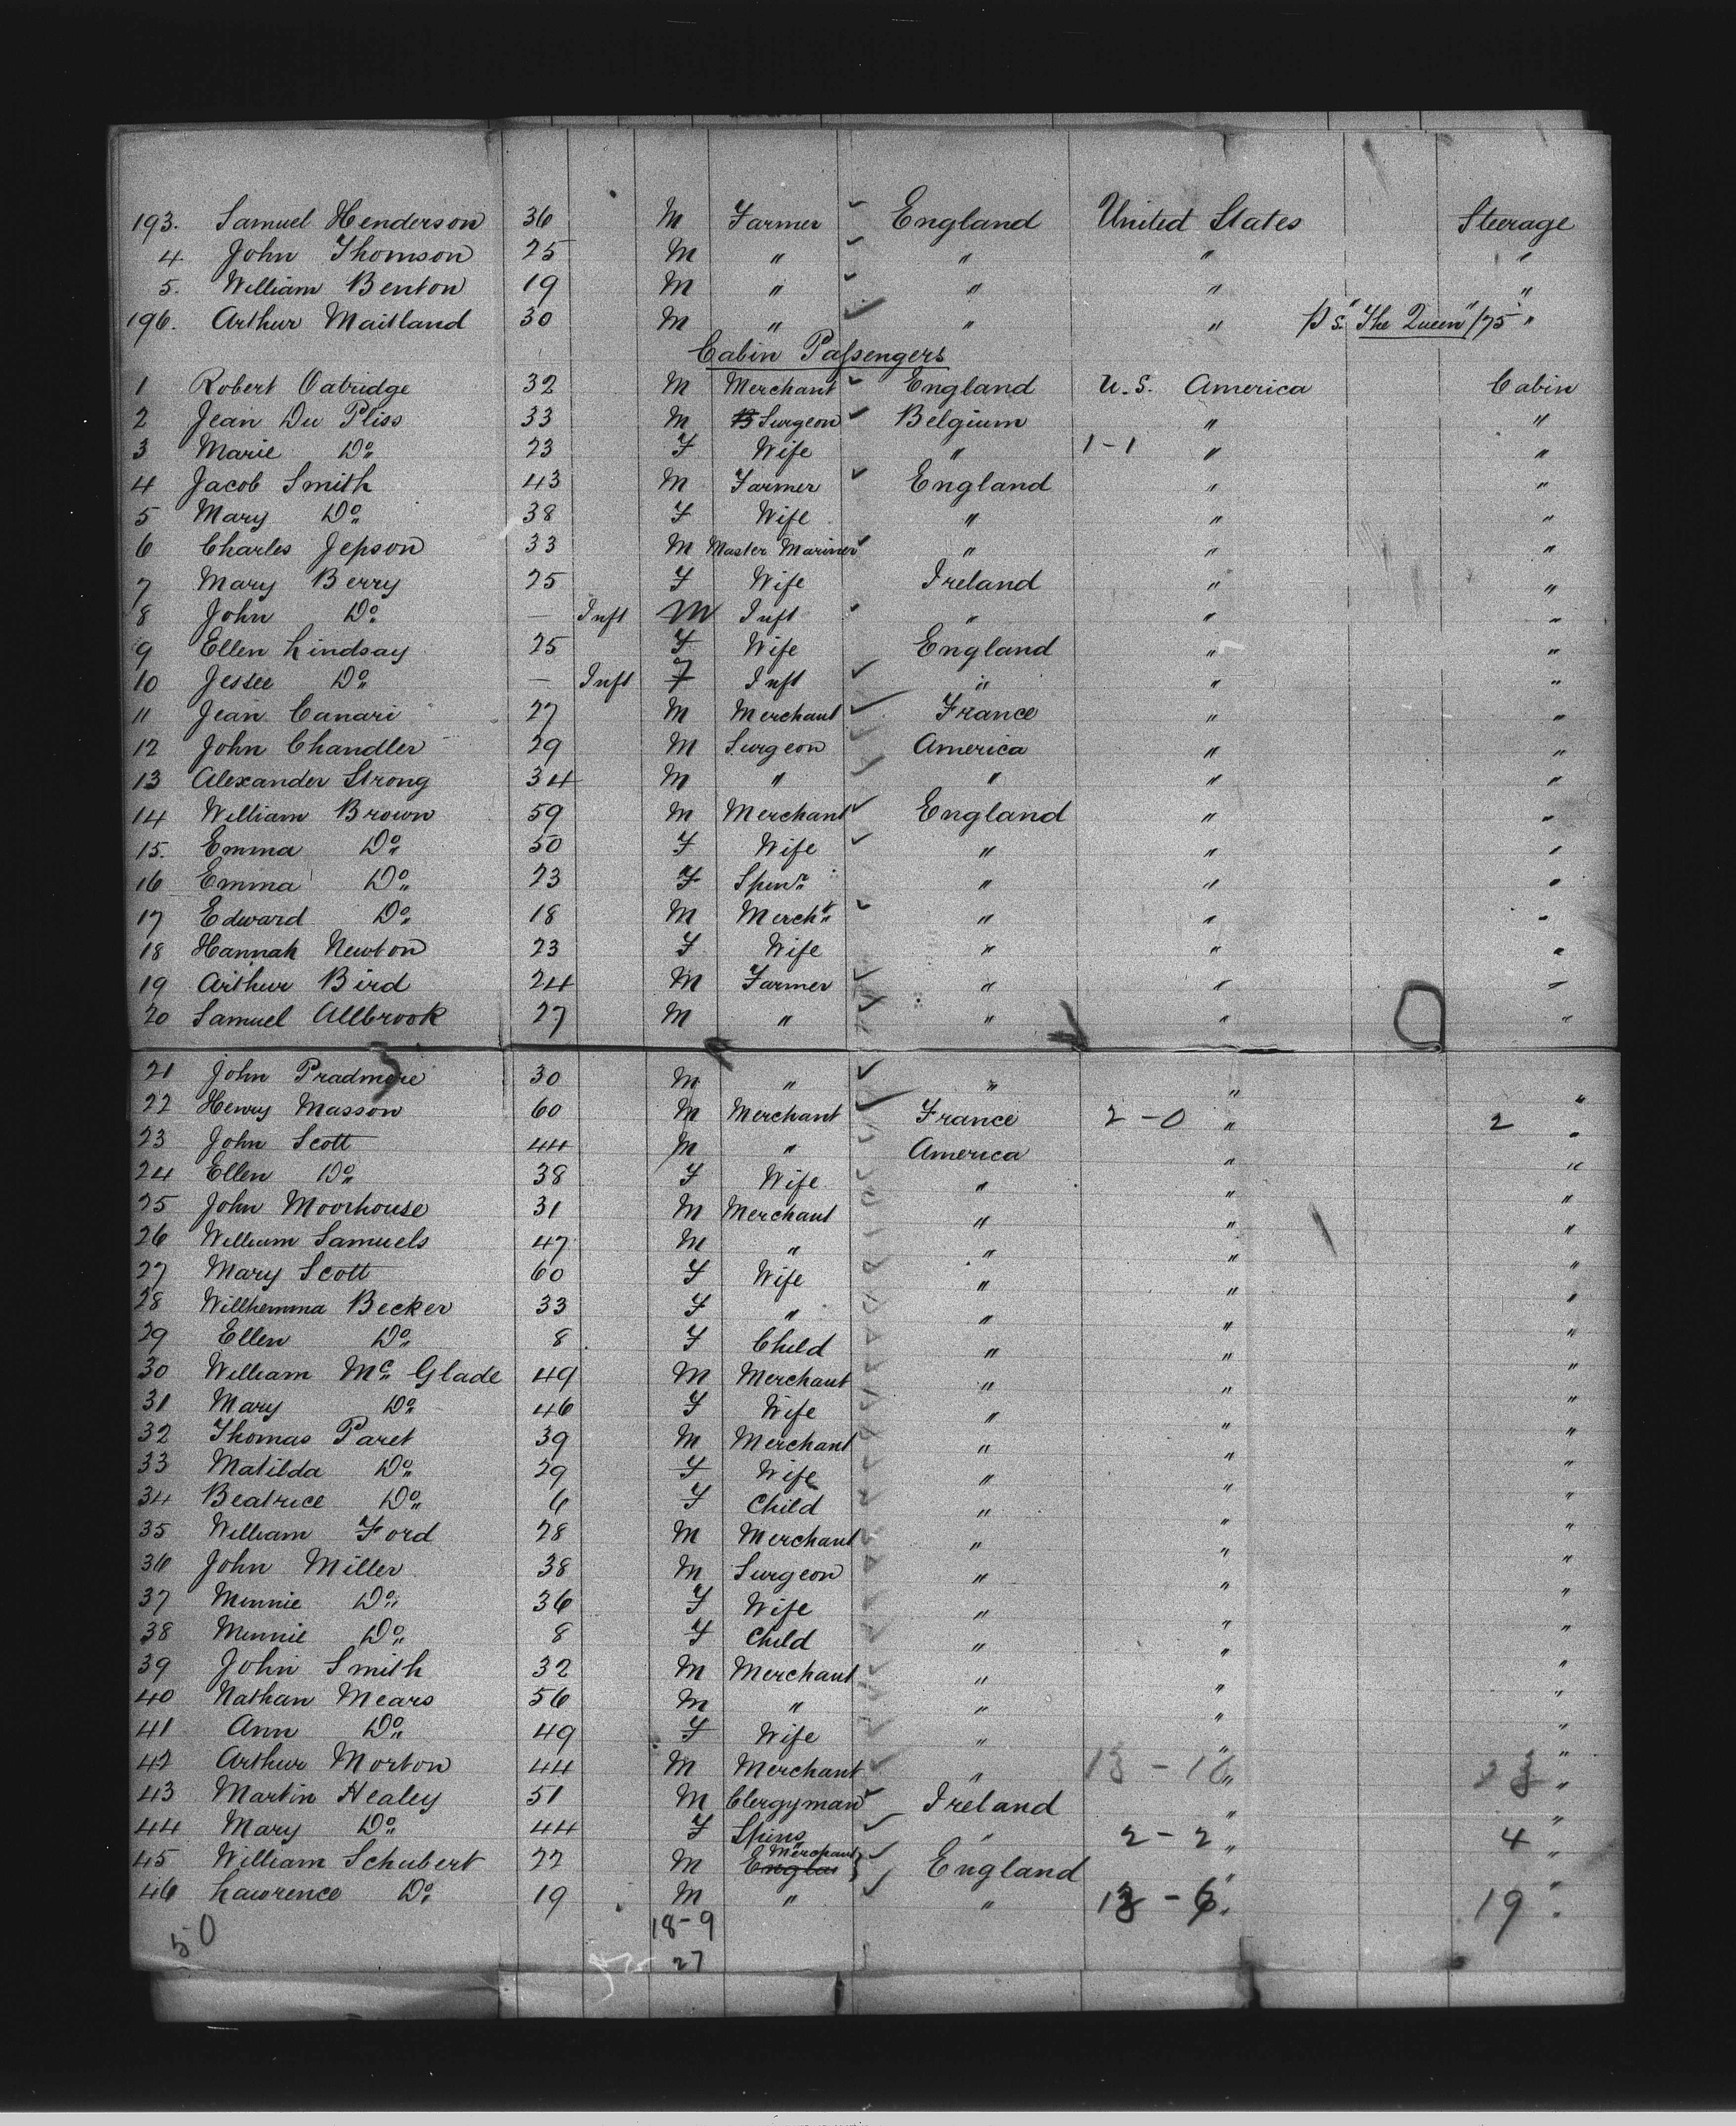 193. Samuel Henderson 36 M Farmer England United States Steerage
4 John Thomson 25 M " " " "
5. William Benton 19 M " " " "
196. Arthur Maitland 30 M " " " S.S. "The Queen" /75 "
Cabin Passengers
1 Robert Oatridge 32 M Merchant England U.S. America Cabin
2 Jean Du Pliss 33 M Surgeon Belgium " "
3 Marie Do 23 F Wife " 1-1 " "
4 Jacob Smith 43 M Farmer England " "
5 Mary Do 38 F Wife " " "
6 Charles Jepson 33 M Master Mariner " " "
7 Mary Berry 25 F Wife Ireland " "
8 John Do — Inft M Inft " " "
9 Ellen Lindsay 25 F Wife England " "
10 Jessee Do — Inft F Inft " " "
11 Jean Canari 27 M Merchant France " "
12 John Chandler 29 M Surgeon America " "
13 Alexander Strong 34 M " " " "
14 William Brown 59 M Merchant England " "
15. Emma Do 50 F Wife " " "
16 Emma Do 23 F Spinr " " "
17 Edward Do 18 M Mercht " " "
18 Hannah Newton 23 F Wife " " "
19 Arthur Bird 24 M Farmer " " "
20 Samuel Allbrook 27 M " " " "
21 John Pradmore 30 M " " " "
22 Henry Masson 60 M Merchant France 2-0 " 2 "
23 John Scott 44 M " America " "
24 Ellen Do 38 F Wife " " "
25 John Moorhouse 31 M Merchant " " "
26 William Samuels 47 M " " " "
27 Mary Scott 60 F Wife " " "
28 Willhemma Becker 33 F " " " "
29 Ellen Do 8 F Child " " "
30 William Mc Glade 49 M Merchant " " "
31 Mary Do 46 F Wife " " "
32 Thomas Paret 39 M Merchant " " "
33 Matilda Do 29 F Wife " " "
34 Beatrice Do 6 F Child " " "
35 William Ford 28 M Merchant " " "
36 John Miller 38 M Surgeon " " "
37 Minnie Do 36 F Wife " " "
38 Minnie Do 8 F Child " " "
39 John Smith 32 M Merchant " " "
40 Nathan Mears 56 M " " " "
41 Ann Do 49 F Wife " " "
42 Arthur Morton 44 M Merchant " " "
43 Martin Healey 51 M Clergyman Ireland " "
44 Mary Do 44 F Spins " 2-2 " 4 "
45 William Schubert 22 M Merchant England " "
46 Lawrence Do 19 M " " 13-6 " 19 "
50 18-9
27